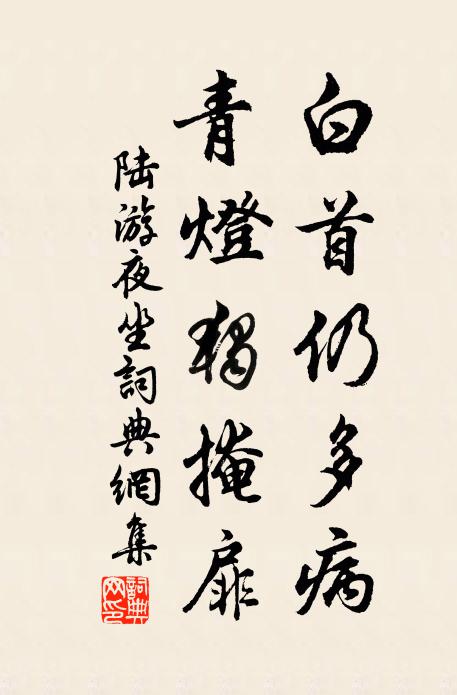 白首仍多病
青燈獨掩扉
陸游夜坐詞典網集
詞典網印